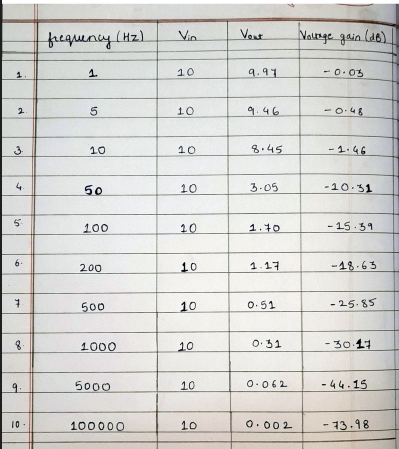 frequency (Hz) Vin Vout Voltage gain (dB)
1. 1 10 9.97 -0.03
2 5 10 9.46 -0.48
3. 10 10 8.45 -1.46
4. 50 10 3.05 -10.31
5. 100 10 1.70 -15.39
6. 200 10 1.17 -18.63
7 500 10 0.51 -25.85
8. 1000 10 0.31 -30.17
9. 5000 10 0.062 -44.15
10. 100000 10 0.002 -73.98